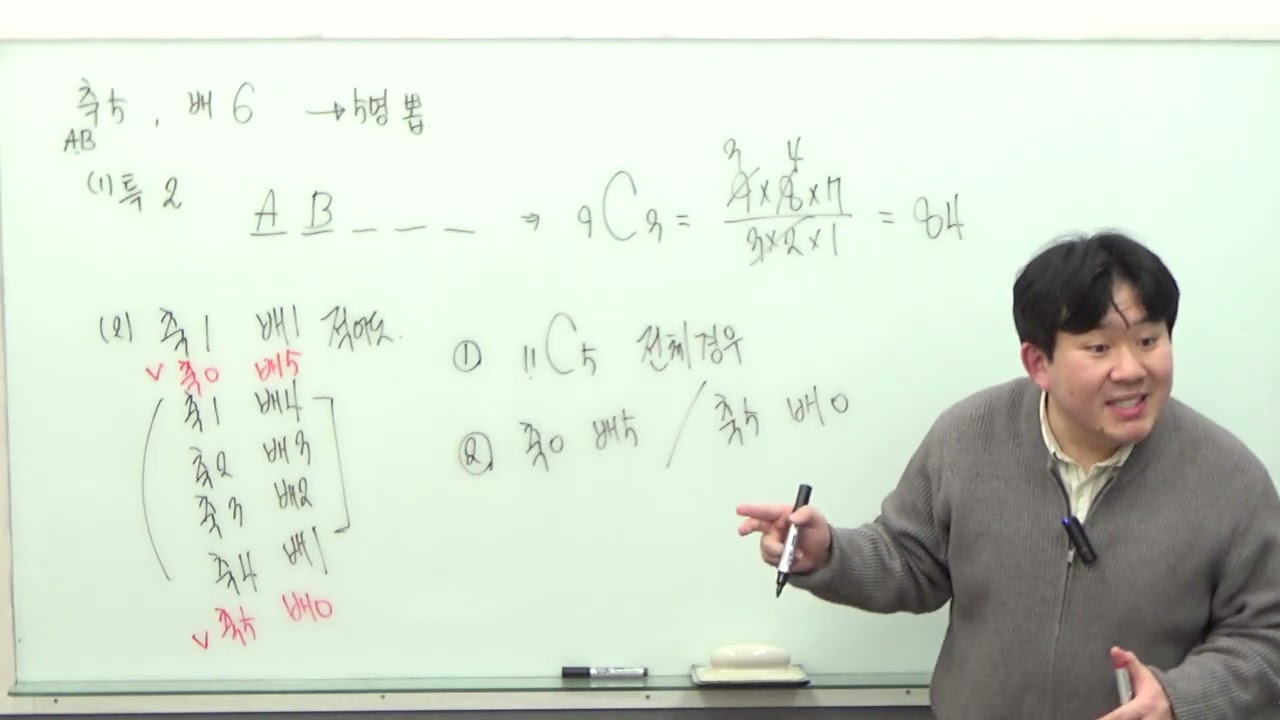 축5, 배6 → 5명 뽑
AB
(1) 특 2 A B _ _ _ ⇒ 9C3 = 9×8×7 / 3×2×1 = 84
3 4
(2) 축1 배1 적어도.
∨ 축0 배5
축1 배4
축2 배3
축3 배2
축4 배1
∨ 축5 배0
① 11C5 전체경우
② 축0 배5 / 축5 배0